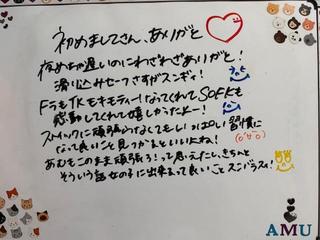 初めましてさん、ありがと
夜めちゃ遅いのにわざわざありがと!
滑り込みセーフさすがスンギッ!
ドラもTKもキモティーなってくれてSOFKも
感動してくれてて嬉しかったよー!
ストイックに頑張らなくてもいい
習慣に
なって良いこと見つかるといいよね!
あむもこのまま頑張ろ!って思えたし、きちんと
そういう話女の子に出来るって良いことスンバラス!
AMU